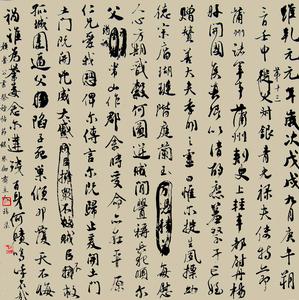 維乾元元年歲次戊戌九月庚午朔
三日壬申叔銀青光祿夫使持節
蒲州諸軍事蒲州刺史上輕車都尉丹楊
縣開國侯真卿以清酌庶羞祭于亡姪
贈贊善大夫季明之靈曰惟爾挺生夙標幼
德宗廟瑚璉階庭蘭玉每慰
人心方期戩穀何圖逆賊間釁稱兵犯順爾
父常山作郡余時受命亦在平
仁兄愛我俾爾傳言爾既歸止爰開土門
土門既開凶威大蹙賊臣不救
孤城圍逼父陷子死巢傾卵覆天不悔
禍誰為荼毒念爾遘殘百身何贖嗚呼哀哉